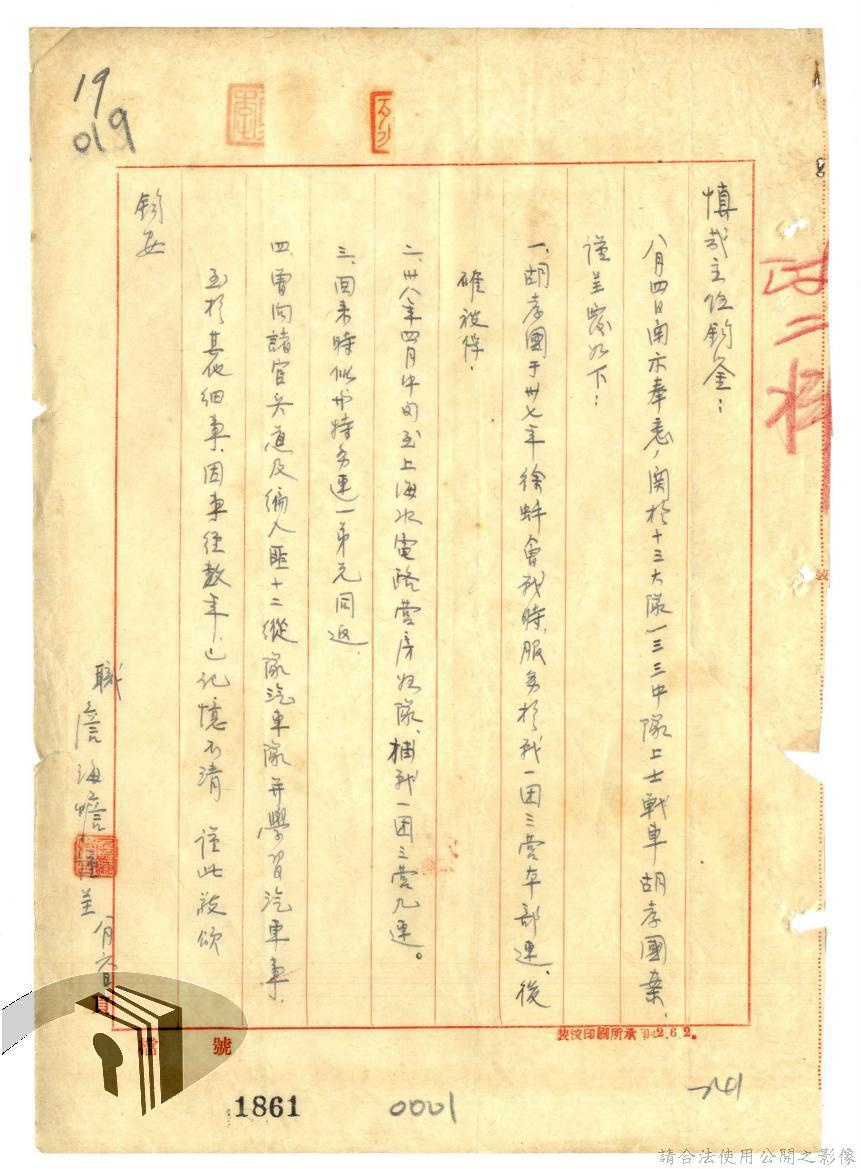 19
019
政二科
慎哉主任鈞鑒：
八月四日函示奉悉，關於十三大隊一三三中隊上士戰車胡孝國案，
謹呈覆如下：
一、胡孝國于卅七年徐蚌會戰時，服務於戰一團三營本部連，後
確被俘．
二、卅八年四月中旬至上海水電路營房歸隊，補戰一團三營九連。
三、回來時似與特務連一弟兄同返．
四、曾向諸官兵道及編入匪十二縱隊汽車隊并學習汽車事．
至於其他細事，因事經數年，已記憶不清 謹此敬頌
鈞安
職
詹海憺謹呈 八月六日
頁
檔 號
裝校印刷所承印42.6.2。
裝
1861
0001
741
請合法使用公開之影像